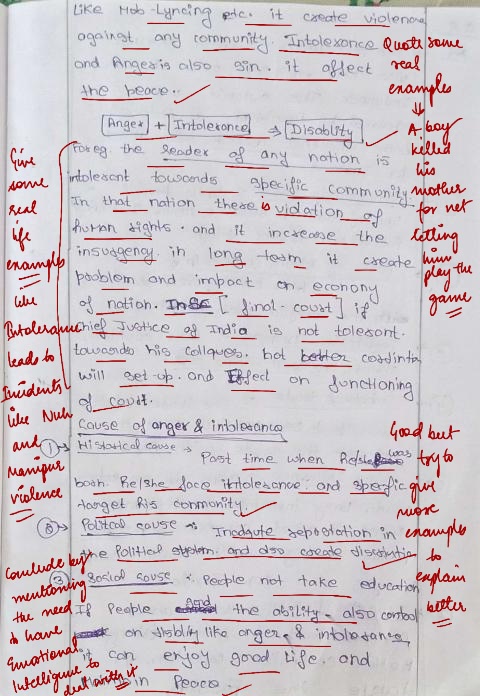 Like Mob-Lyncing etc. it create violence
against any community. Intolerance
and Anger is also sin. it affect
the peace.
Anger + Intolerance → Disablity
Foreg. the leader of any nation is
intolerant towards specific community
In that nation there is violation of
human rights. and it increase the
insurgency. in long term it create
problem and impact on economy
of nation. [final-court] if
chief Justice of India is not tolerant.
towards his collques. not better cordinta
will set-up. and Effect on functioning
of court.
Cause of anger & intolerance
① Historical cause →
Past time when He/she was
born. He/she face intolerance and specific
target his community.
② Political cause :-
Inadqute repostation in
the Political system. and also create disscrimintin
③ Social cause :- People not take education
If People and the ability. also control
on disblity like anger & intolerance,
it can enjoy good life. and
in Peace.
Quote some
real
examples
↓
A boy
killed
his
mother
for not
letting
him
play the
game
Give
some
real
life
examples
like
Intolerance
leads to
Incidents
like Nuh
and
Manipur
violence
Good but
try to
give
more
examples
to
explain
better
Conclude by
mentioning
the need
to have
Emotional
Intelligence to
deal with it